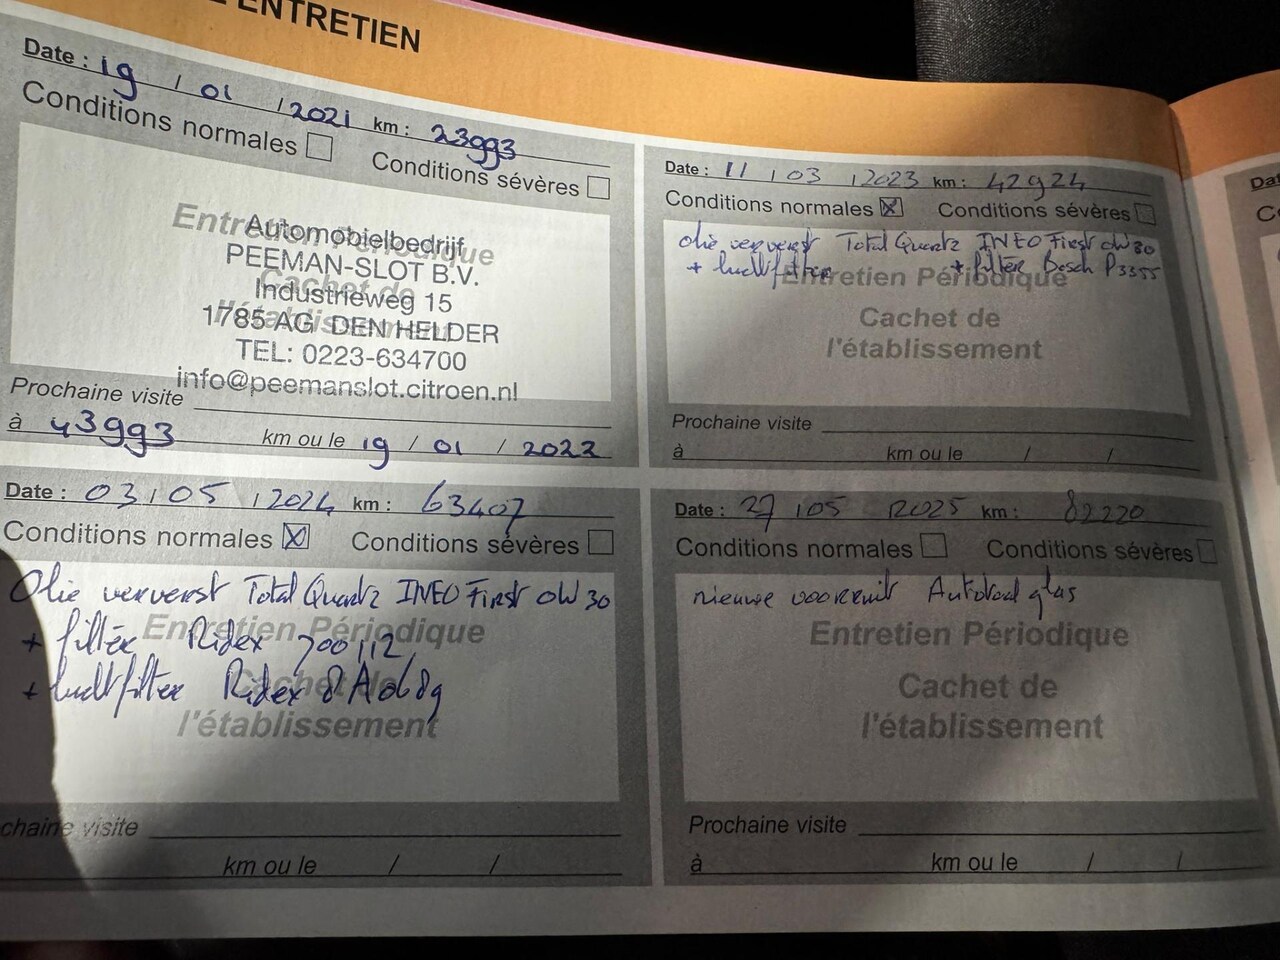 ENTRETIEN
Date : 19 / 01 / 2021 km : 23993
Conditions normales Conditions sévères
Entretien Périodique
Cachet de
l'établissement
Automobielbedrijf
PEEMAN-SLOT B.V.
Industrieweg 15
1785 AG DEN HELDER
TEL: 0223-634700
info@peemanslot.citroen.nl
Prochaine visite
à 43993 km ou le 19 / 01 / 2022
Date : 11 / 03 / 2023 km : 42924
Conditions normales X Conditions sévères
olie ververst Total Quartz INEO First 0W30
+ luchtfilter + filter Bosch P3355
Entretien Périodique
Cachet de
l'établissement
Prochaine visite
à km ou le / /
Date : 03 / 05 / 2024 km : 63407
Conditions normales X Conditions sévères
Olie ververst Total Quartz INEO First 0W30
+ filter Ridex 700112
+ luchtfilter Ridex 8A0689
Entretien Périodique
Cachet de
l'établissement
chaine visite
km ou le / /
Date : 27 / 05 2025 km : 82220
Conditions normales Conditions sévères
nieuwe voorruit Autotaal glas
Entretien Périodique
Cachet de
l'établissement
Prochaine visite
à km ou le / /
Dat